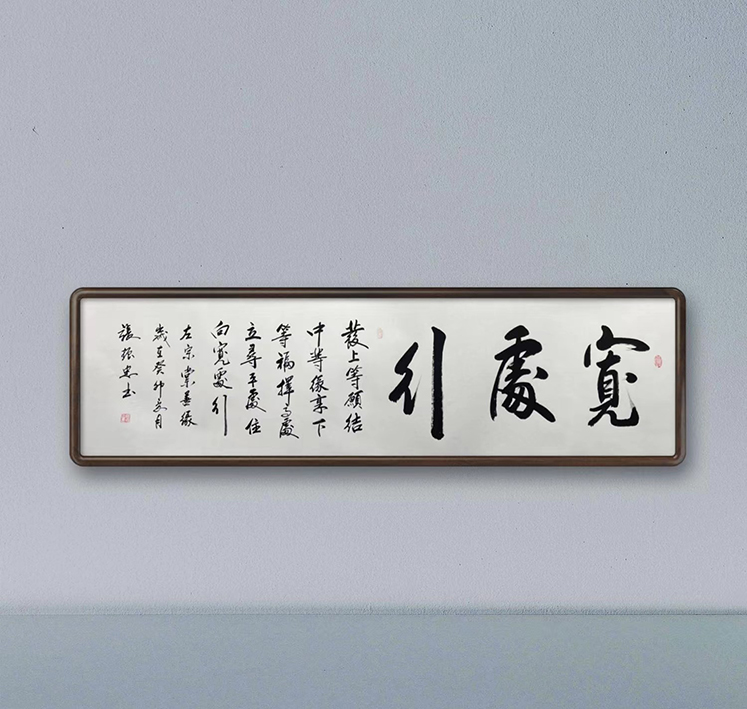 寬處行
發上等願結
中等緣享下
等福擇高處
立尋平處住
向寬處行
左宗棠善緣
歲在癸卯月
張振書